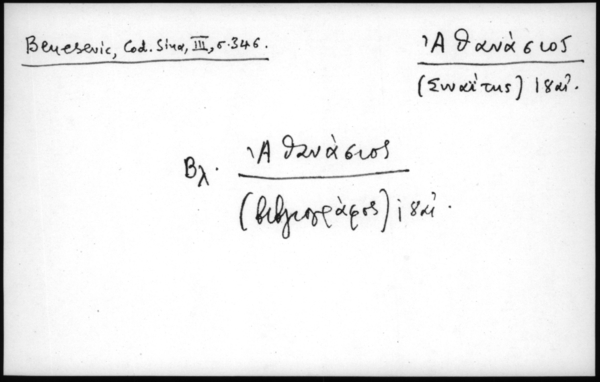 Benesevic, Cod. Sina, III, σ. 346.
Ἀθανάσιος
(Σιναΐτης) 18 αἰ.
Βλ. Ἀθανάσιος
(βιβλιογράφος) 18 αἰ.